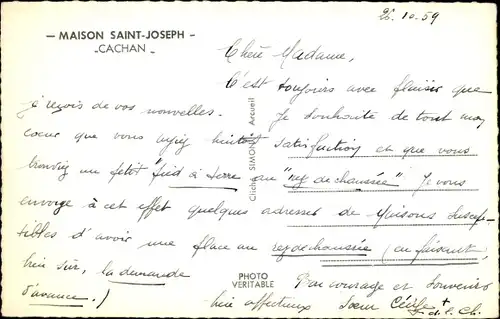 — MAISON SAINT-JOSEPH —
- CACHAN -
22.10.59
Chère Madame,
C'est toujours avec plaisir que
je reçois de vos nouvelles. Je souhaite de tout mon
coeur que vous ayiez satisfaction et que vous
trouviez un petit "pied à terre" au "rez de chaussée" Je vous
envoye à cet effet quelques adresses de Maisons suscep-
tibles d'avoir une place au rez de chaussée (en faisant,
bien sûr, la demande
d'avance.) Bon courage et souvenirs
bien affectueux Soeur Cécile
d. l. Ch.
PHOTO
VERITABLE
Cliché SIMON Arcueil